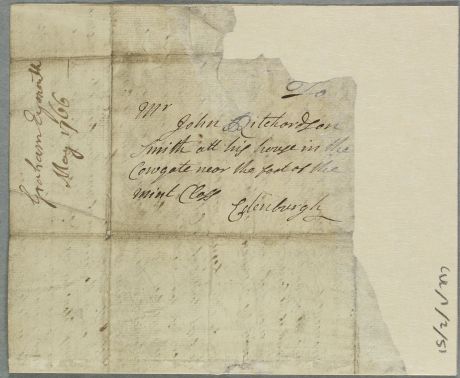 To
Mr
John Ritchardson
Smith att his house in the
Cowgate near the foot of the
mint Closs
Edenburgh
Graham Eymouth
May 1766